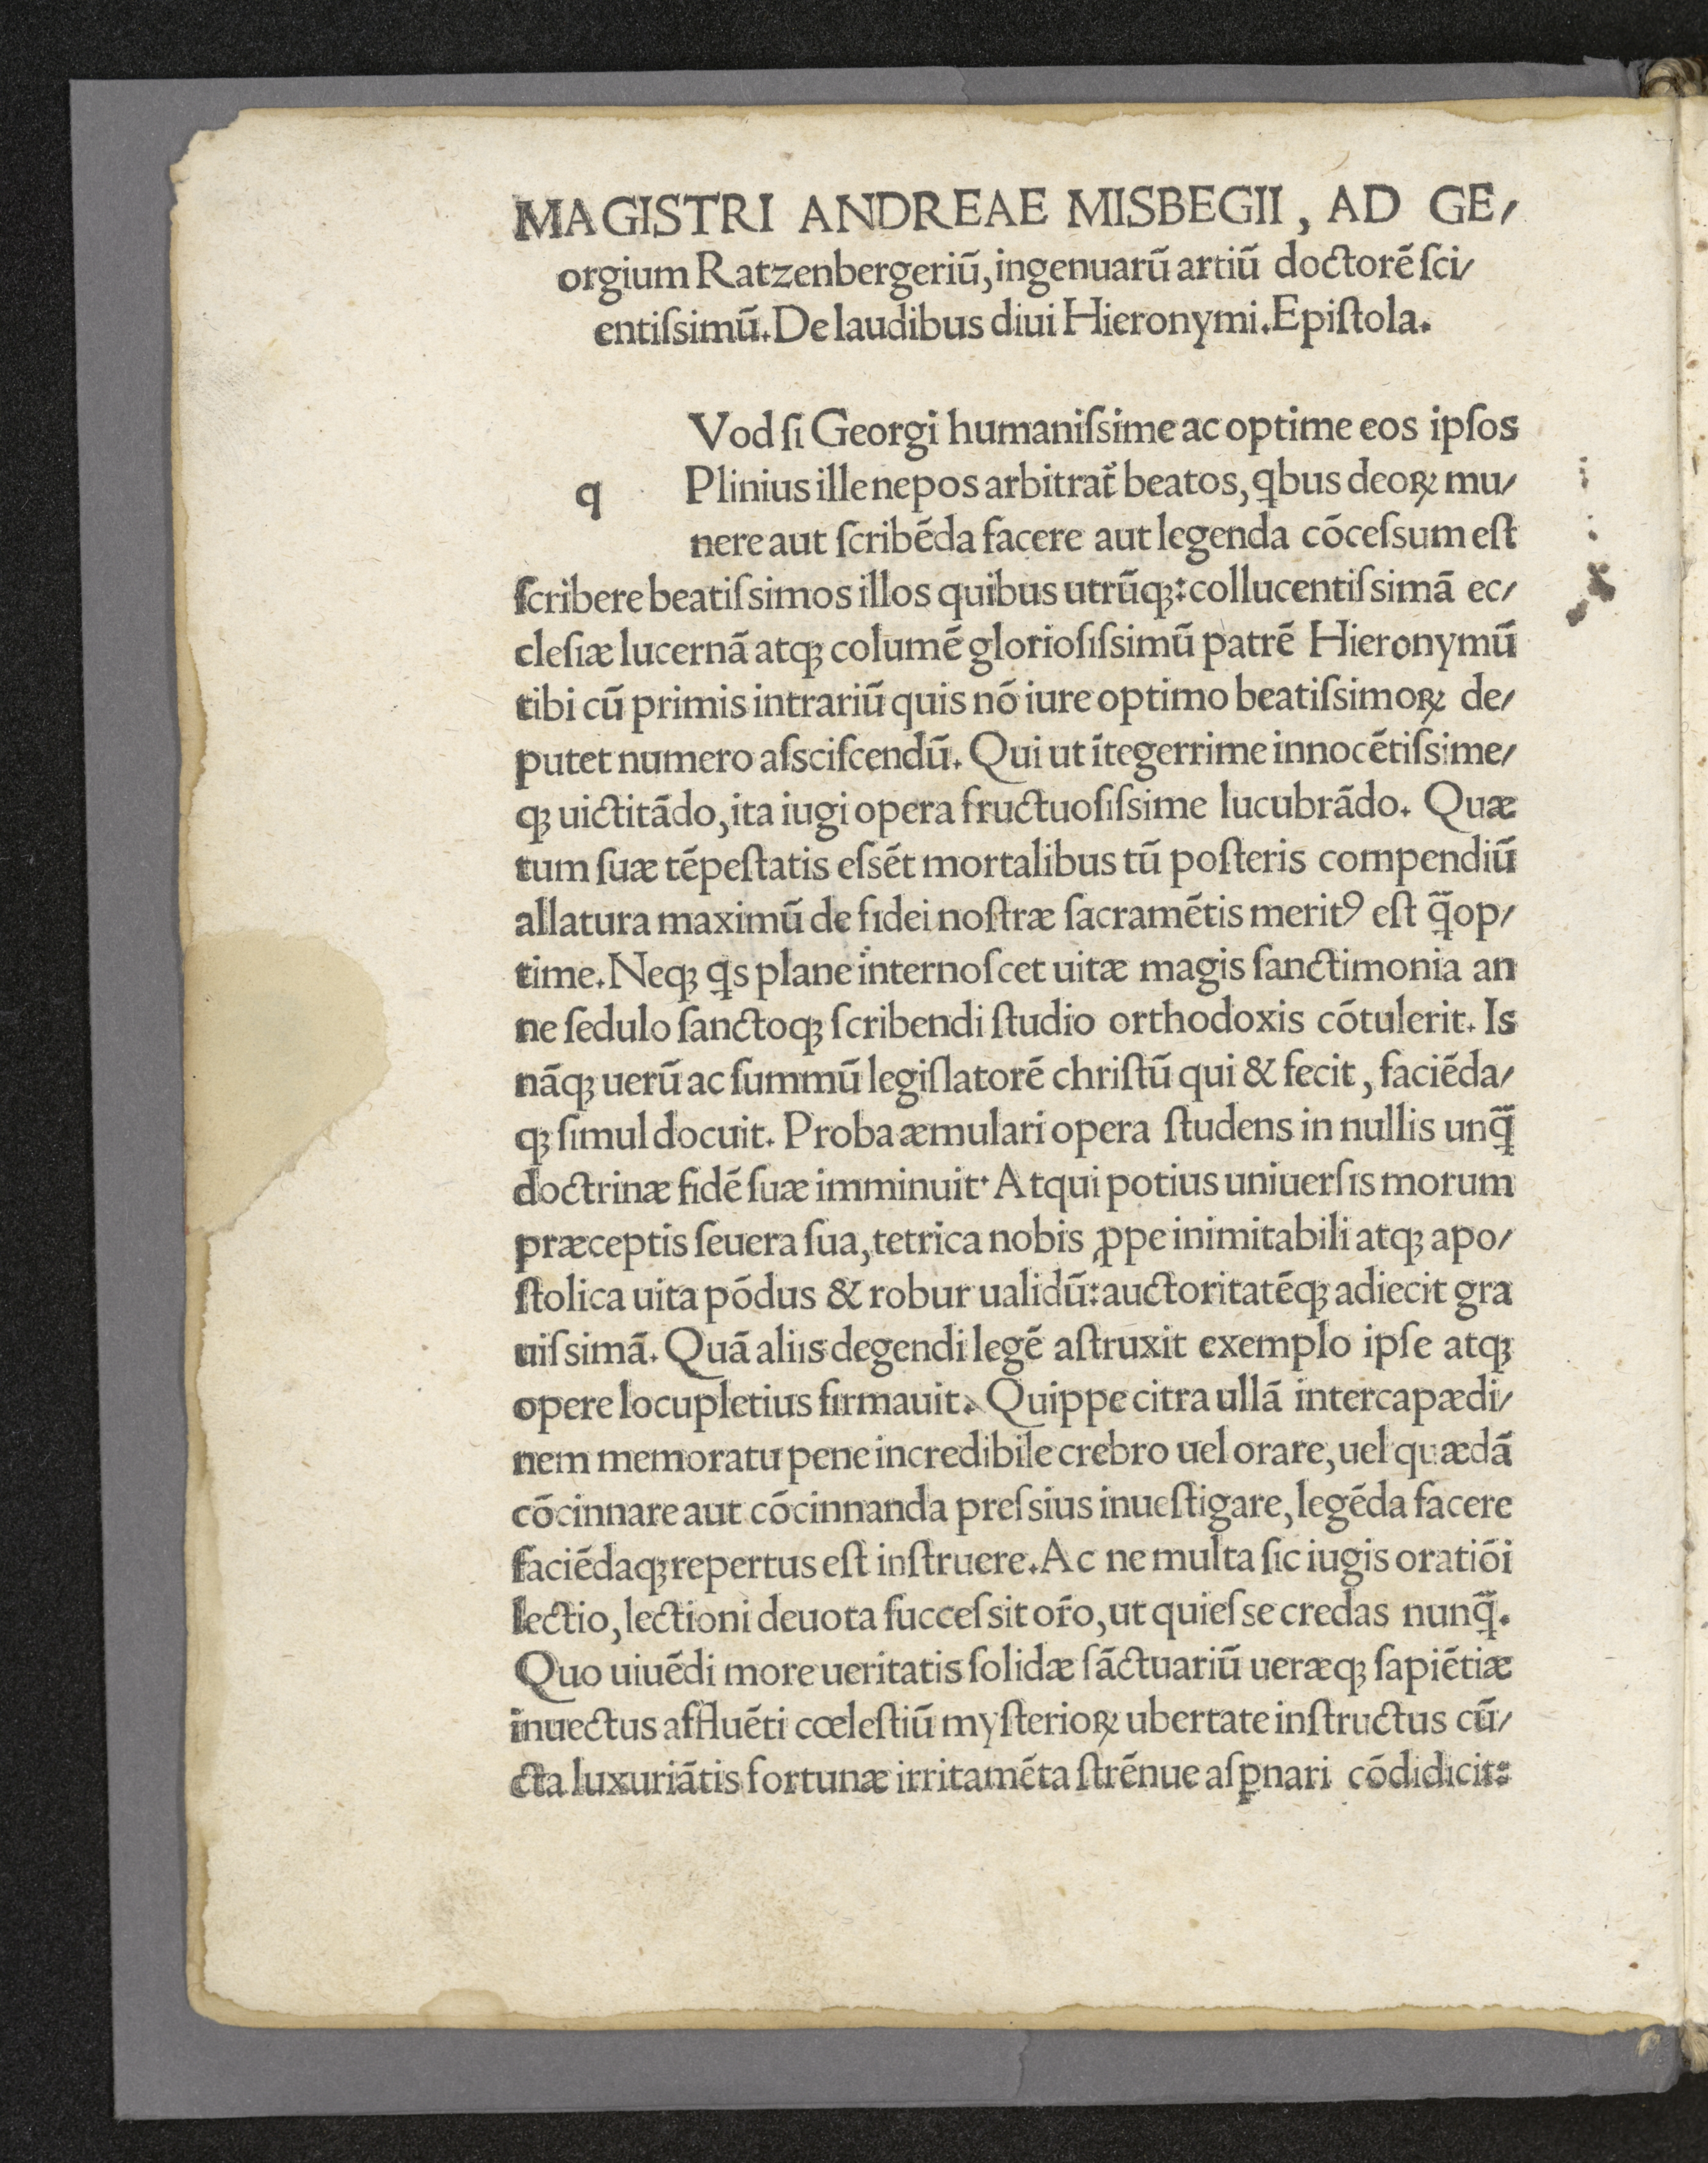 MAGISTRI ANDREAE MISBEGII, AD GE/
orgium Ratzenbergeriū, ingenuarū artiū doctorē ſci/
entiſsimū. De laudibus diui Hieronymi. Epiſtola.
Vod ſi Georgi humaniſsime ac optime eos ipſos
q Plinius ille nepos arbitrat̄ beatos, qbus deoꝝ mu/
nere aut ſcribēda facere aut legenda cōceſsum eſt
ſcribere beatiſsimos illos quibus utrūqꝫ: collucentiſsimā ec/
cleſiæ lucernā atqꝫ columē glorioſiſsimū patrē Hieronymū
tibi cū primis intrariū quis nō iure optimo beatiſsimoꝝ de/
putet numero aſsciſcendū. Qui ut ītegerrime innocētiſsime/
qꝫ uictitādo, ita iugi opera fructuoſiſsime lucubrādo. Quæ
tum ſuæ tēpeſtatis eſsēt mortalibus tū poſteris compendiū
allatura maximū de fidei noſtræ ſacramētis meritꝰ eſt q̄op/
time. Neqꝫ qs plane internoſcet uitæ magis ſanctimonia an
ne ſedulo ſanctoqꝫ ſcribendi ſtudio orthodoxis cōtulerit. Is
nāqꝫ uerū ac ſummū legiſlatorē chriſtū qui & fecit, faciēda/
qꝫ ſimul docuit. Proba æmulari opera ſtudens in nullis unq̄
doctrinæ fidē ſuæ imminuit. Atqui potius uniuerſis morum
præceptis ſeuera ſua, tetrica nobis ꝓpe inimitabili atqꝫ apo/
ſtolica uita pōdus & robur ualidū: auctoritatēqꝫ adiecit gra
uiſsimā. Quā aliis degendi legē aſtruxit exemplo ipſe atqꝫ
opere locupletius firmauit. Quippe citra ullā intercapædi/
nem memoratu pene incredibile crebro uel orare, uel quædā
cōcinnare aut cōcinnanda preſsius inueſtigare, legēda facere
faciēdaqꝫ repertus eſt inſtruere. Ac ne multa ſic iugis oratiōi
lectio, lectioni deuota ſucceſsit or̄o, ut quieſse credas nunq̄.
Quo uiuēdi more ueritatis ſolidæ ſāctuariū ueræqꝫ ſapiētiæ
inuectus affluēti cœleſtiū myſterioꝝ ubertate inſtructus cū/
cta luxuriātis fortunæ irritamēta ſtrēnue aſꝑnari cōdidicit: